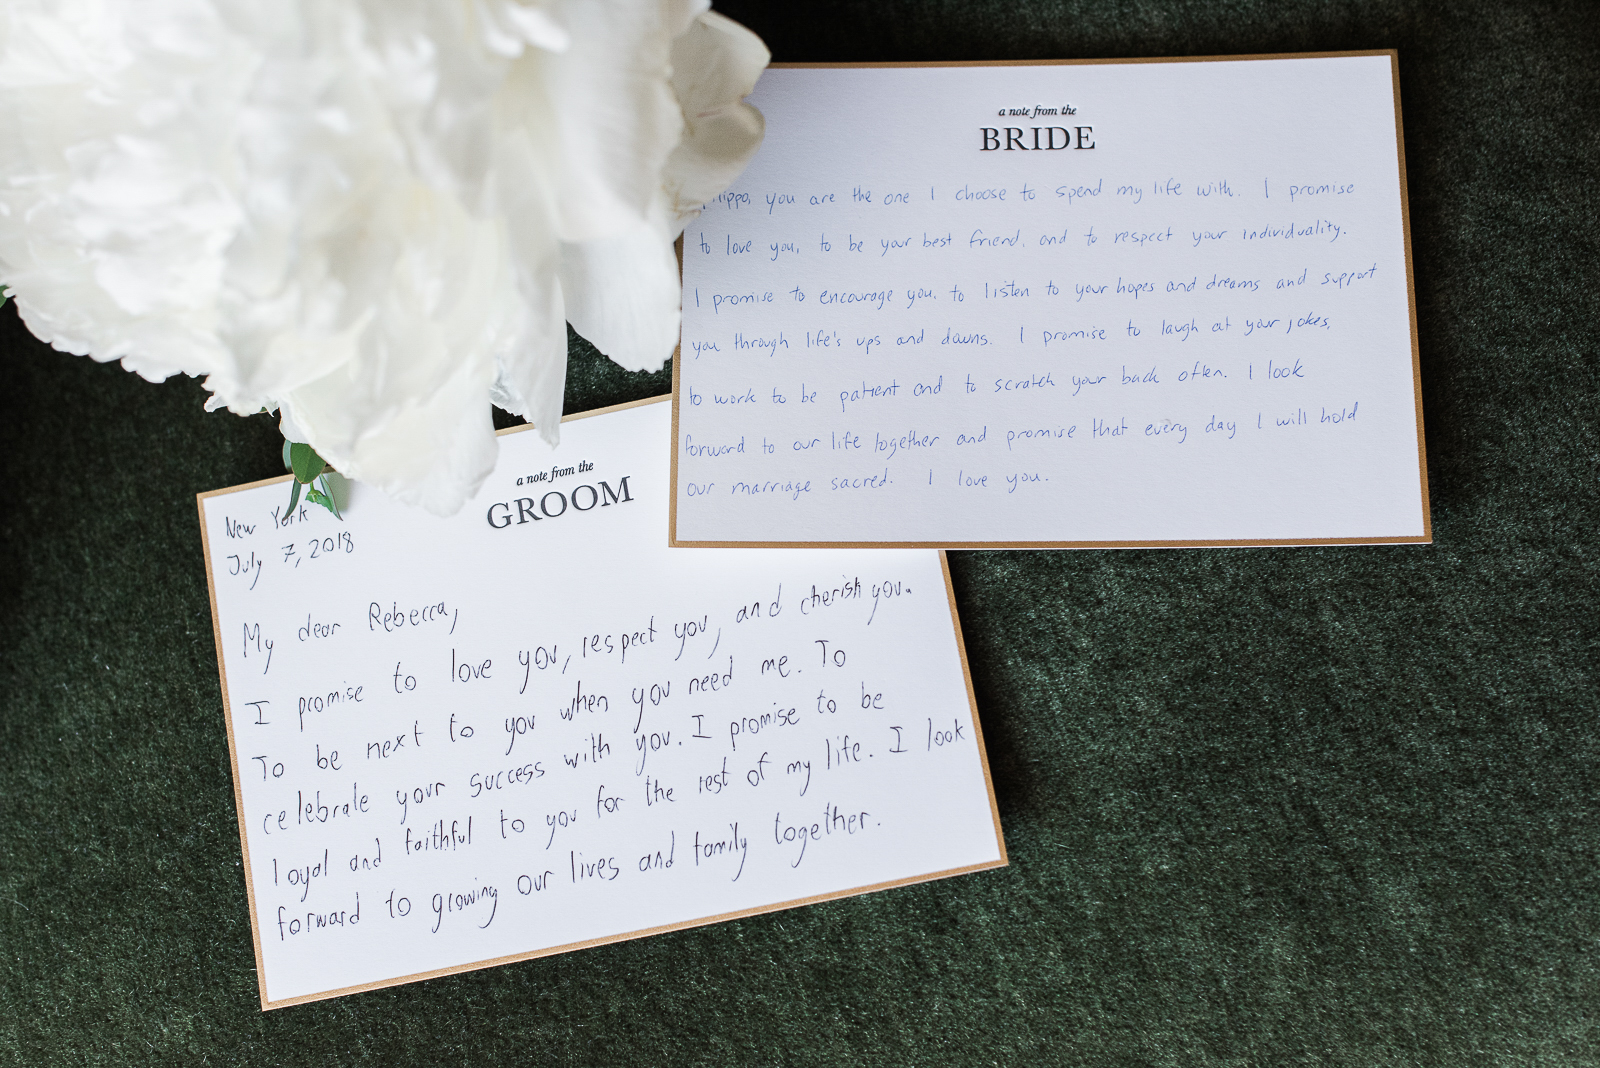 a note from the
BRIDE
you are the one I choose to spend my life with. I promise
to love you, to be your best friend, and to respect your individuality.
I promise to encourage you, to listen to your hopes and dreams and support
you through life's ups and downs. I promise to laugh at your jokes,
to work to be patient and to scratch your back often. I look
forward to our life together and promise that every day I will hold
our marriage sacred. I love you.
a note from the
GROOM
New York
July 7, 2018
My dear Rebecca,
I promise to love you, respect you, and cherish you.
To be next to you when you need me. To
celebrate your success with you. I promise to be
loyal and faithful to you for the rest of my life. I look
forward to growing our lives and family together.